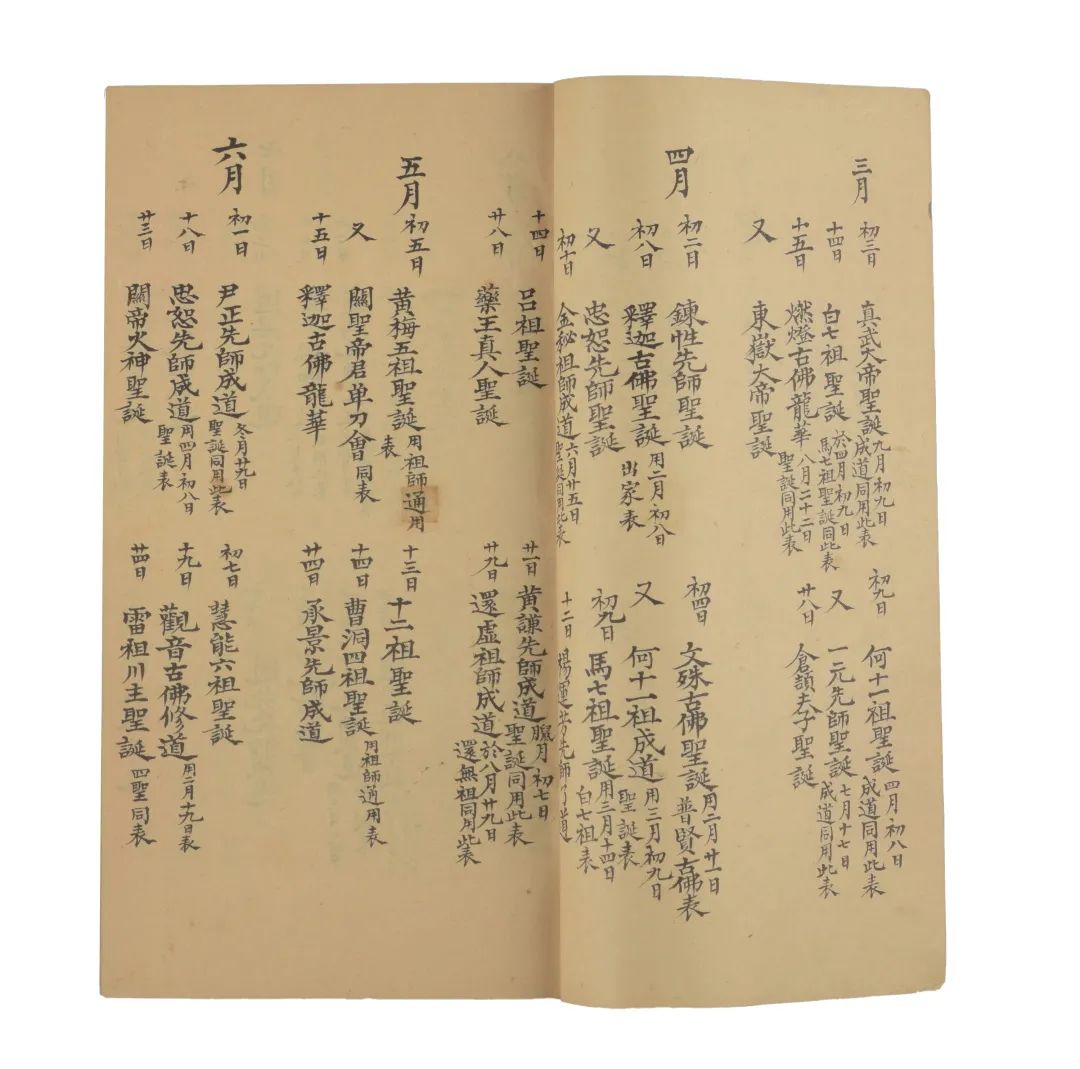 三月
初三日 真武大帝聖誕 九月初九日成道同用此表
初九日 何十一祖聖誕 四月初八日成道同用此表
十四日 白七祖聖誕 於四月初九日馬七祖聖誕同此表
又 一元先師聖誕 七月十七日成道同用此表
十五日 燃燈古佛龍華 八月二十二日聖誕同用此表
廿八日 倉頡夫子聖誕
又 東嶽大帝聖誕
四月
初二日 鍊性先師聖誕
初四日 文殊古佛聖誕 用二月廿一日普賢古佛表
初八日 釋迦古佛聖誕 用二月初八日出家表
又 何十一祖成道 用三月初九日聖誕表
又 忠恕先師聖誕
初九日 馬七祖聖誕 用三月十四日白七祖表
初十日 金秘祖師成道 六月廿五日聖誕同用此表
十二日 楊運先師了道
十四日 呂祖聖誕
廿一日 黄謙先師成道 臘月初七日聖誕同用此表
廿八日 藥王真人聖誕
廿九日 還虛祖師成道 於八月廿九日還無祖同用此表
五月
初五日 黄梅五祖聖誕 用祖師通用表
十三日 十二祖聖誕
又 關聖帝君单刀會 同表
十四日 曹洞四祖聖誕 用祖師通用表
十五日 釋迦古佛龍華
廿四日 承景先師成道
六月
初一日 尹正先師成道 冬月廿九日聖誕同用此表
初七日 慧能六祖聖誕
十八日 忠恕先師成道 用四月初八日聖誕表
十九日 觀音古佛修道 用二月十九日表
廿三日 關帝火神聖誕
廿四日 雷祖川主聖誕 四聖同表